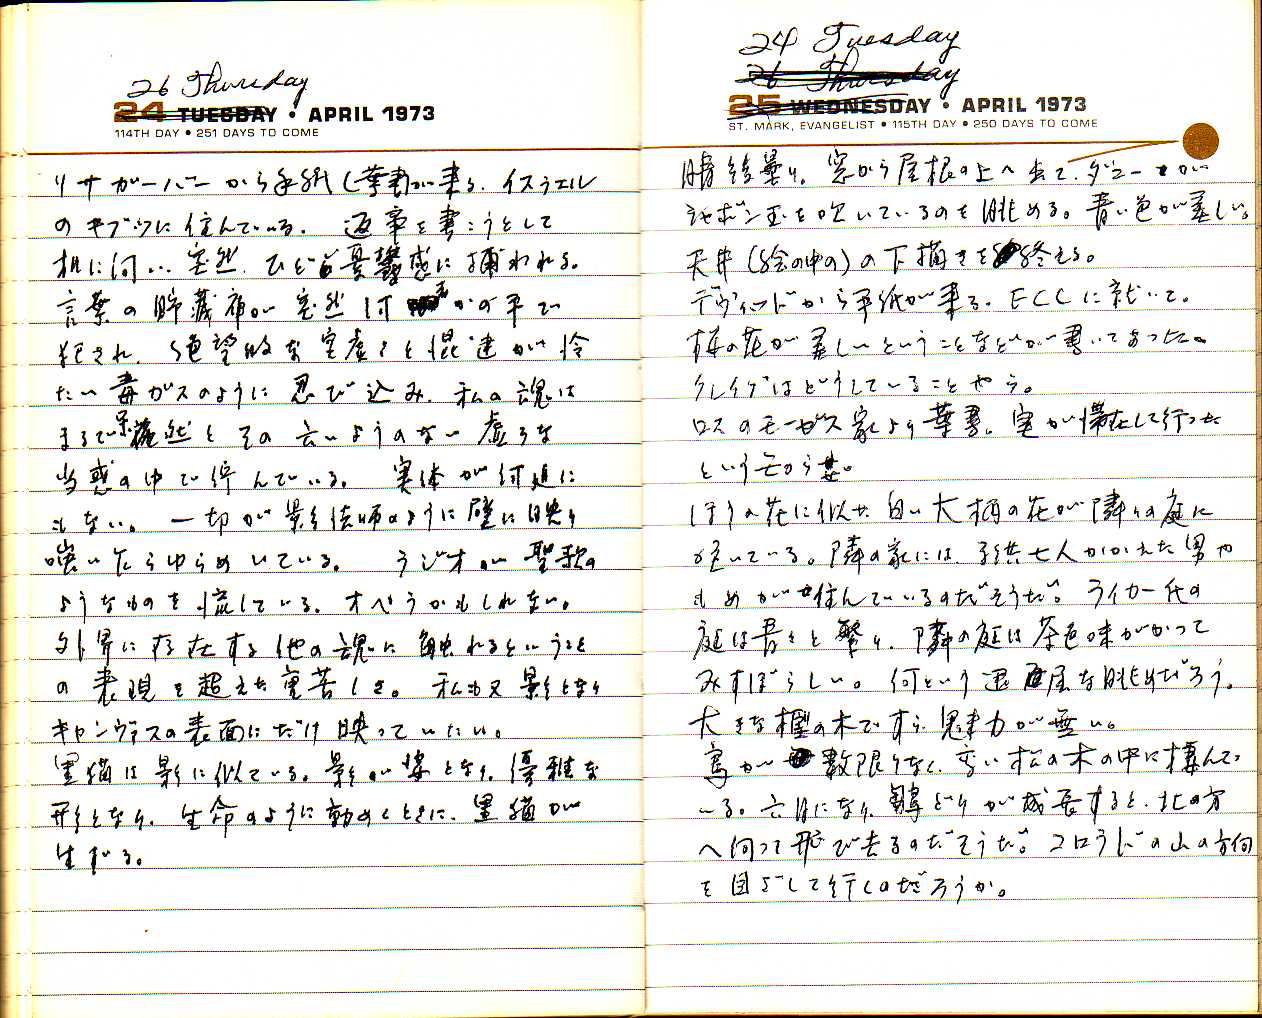 26 Thursday
24 TUESDAY • APRIL 1973
114TH DAY • 251 DAYS TO COME
リサガーバーから手紙(葉書)が来る. イスラエル
のキブツに住んでいる. 返事を書こうとして
机に向い, 突然, ひどい憂鬱感に捕われる。
言葉の貯蔵庫が突然何者かの手で
犯され, 絶望的な空虚さと混迷が冷
たい毒ガスのように忍び込み. 私の魂は
まるで茫然とその云いようのない虚ろな
当惑の中で佇んでいる. 実体が何処に
もない。一切が影法師のように壁に映り
嗤いたゆらめいている. ラジオが聖歌の
ようなものを流している. オペラかもしれない。
外界に存在する他の魂に触れるということ
の表現を超えた重苦しさ。私も又影となり
キャンヴァスの表面にだけ映っていたい。
黒猫は影に似ている。影が姿となり, 優雅な
形となり, 生命のように動めくときに, 黒猫が
生ずる。
24 Tuesday
26 Thursday
25 WEDNESDAY • APRIL 1973
ST. MARK, EVANGELIST • 115TH DAY • 250 DAYS TO COME
晴後曇り. 窓から屋根の上へ出て, ダニーが
シャボン玉を吹いているのを眺める。青い色が美しい。
天井(絵の中の)の下描きを終える。
デヴィッドから手紙が来る. ECCに就いて.
梅の花が美しいということなどが書いてあった。
クレイグはどうしていることやら。
ロスのモーガス家より葉書. 実が滞在して行った
という
ほうの花に似た白い大柄の花が隣りの庭に
咲いている。隣の家には, 子供七人かかえた男や
もめが住んでいるのだそうだ。ライカー氏の
庭は青々と繁り, 隣の庭は茶色味がかって
みすぼらしい。何という退屈な眺めだろう。
大きな樫の木ですら魅力が無い。
鳥が数限りなく, 高い松の木の中に棲んで
いる. 六月になり, 雛どりが成長すると, 北の方
へ向って飛び去るのだそうだ。コロラドの山の方向
を目ざして行くのだろうか。